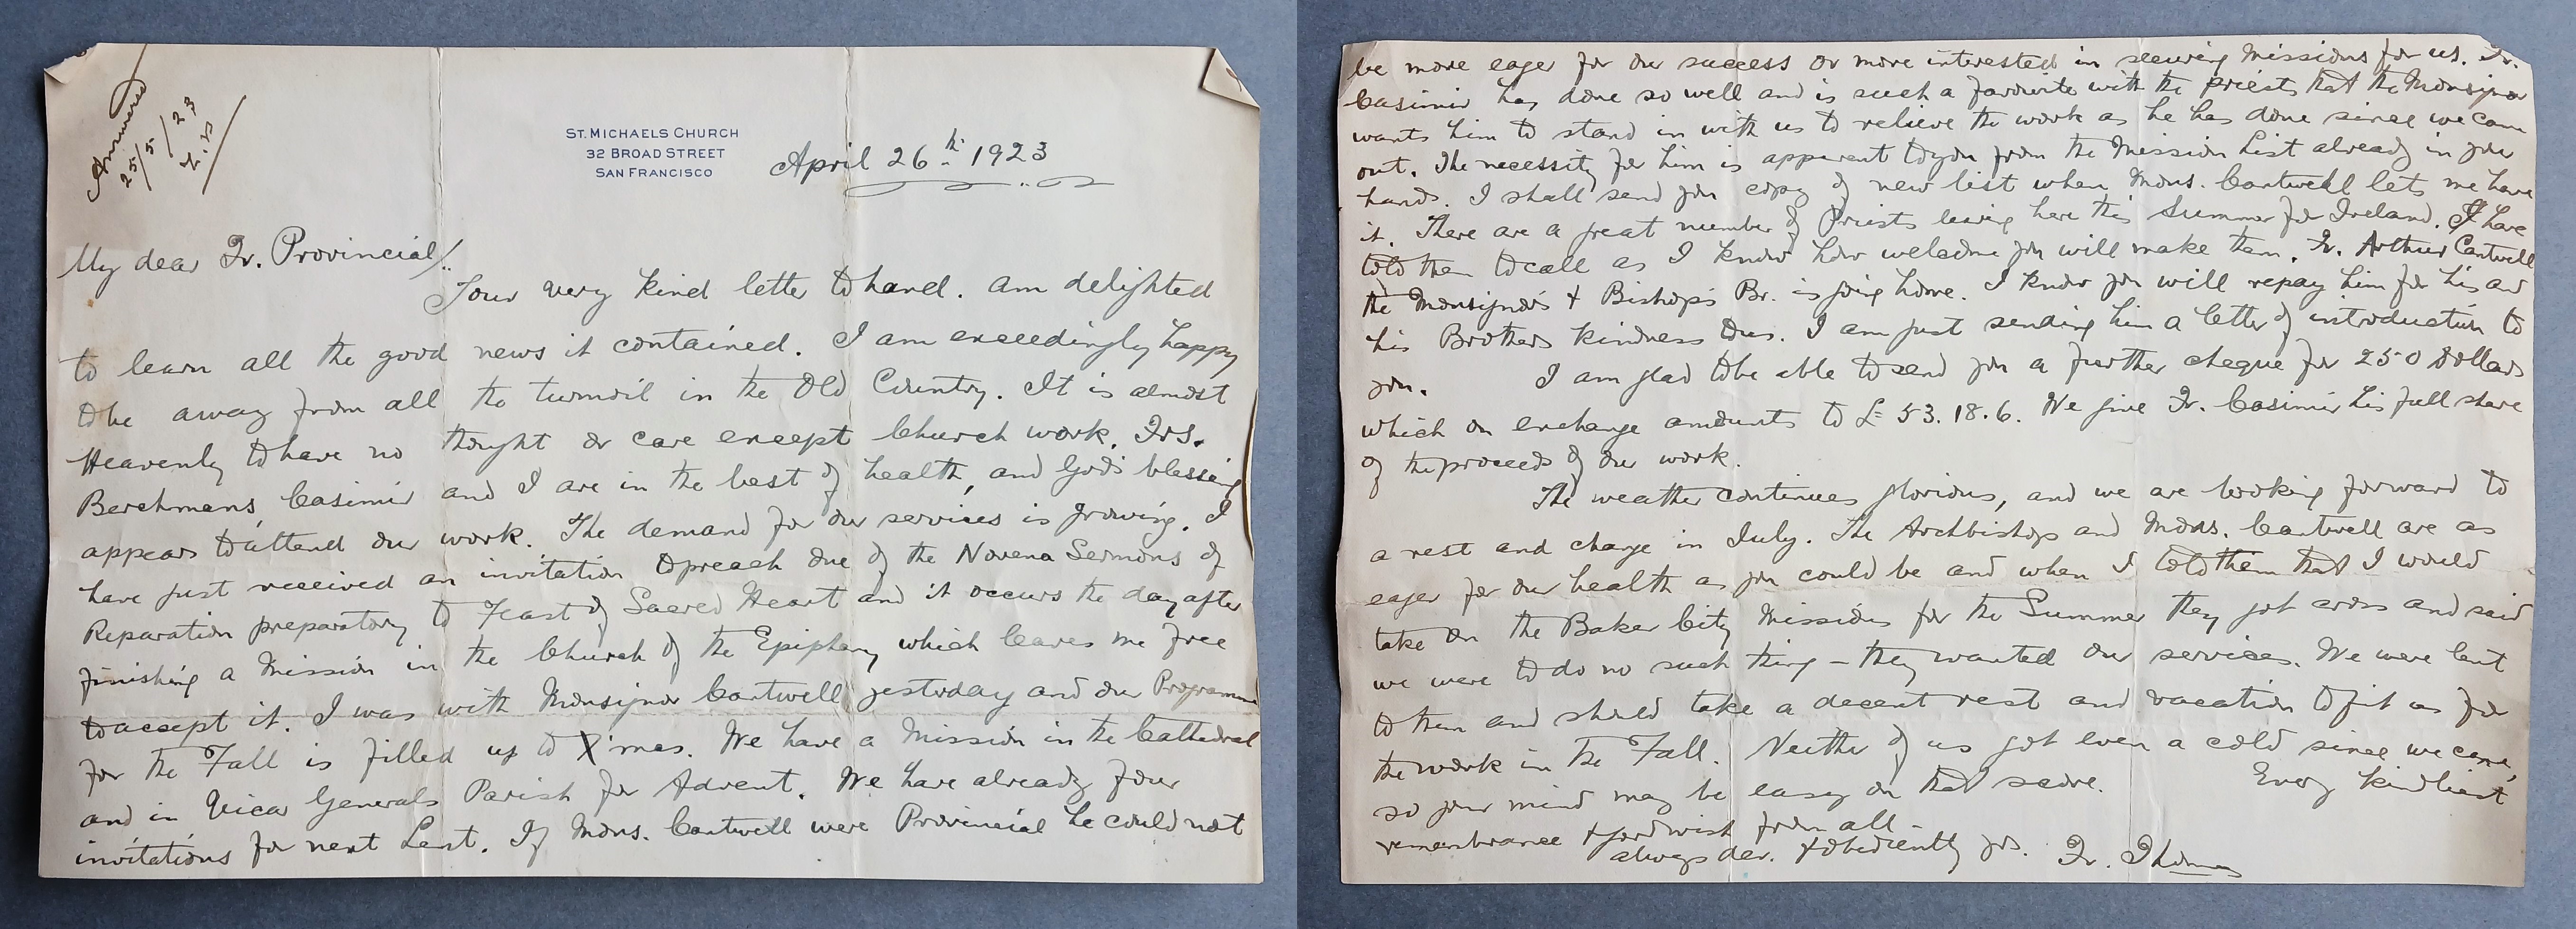 Answered
25/5/23
ST. MICHAELS CHURCH
32 BROAD STREET
SAN FRANCISCO
April 26th 1923
My dear Fr. Provincial/.
Your very kind letter to hand. am delighted
to learn all the good news it contained. I am exceedingly happy
to be away from all the turmoil in the Old Country. It is almost
Heavenly to have no thought or care except Church work. Frs.
Berchmans, Casimir and I are in the best of health, and God's blessing
appears to attend our work. The demand for our services is growing. I
have just received an invitation to preach one of the Novena Sermons of
Reparation preparatory to Feast of Sacred Heart and it occurs the day after
finishing a Mission in the Church of the Epiphany which leaves me free
to accept it. I was with Monsignor Cantwell yesterday and our Programme
for the Fall is filled up to X'mas. We have a Mission in the Cathedral
and in Vicar Generals Parish for Advent. We have already four
invitations for next Lent. If Mons. Cantwell were Provincial he could not
be more eager for our success or more interested in securing Missions for us. Fr.
Casimir has done so well and is such a favourite with the priests that the Monsignor
wants him to stand in with us to relieve the work as he has done since we came
out. The necessity for him is apparent to you from the Mission List already in your
hands. I shall send you copy of new list when Mons. Cantwell lets me have
it. There are a great number of Priests leaving here this Summer for Ireland. I have
told them to call as I know how welcome you will make them. Fr. Arthur Cantwell
the Monsignor's & Bishop's Br. is going home. I know you will repay him for his and
his Brothers kindness to us. I am just sending him a letter of introduction to
you.
I am glad to be able to send you a further cheque for 250 Dollars
which on exchange amounts to £53.18.6. We give Fr. Casimir his full share
of the proceeds of our work.
The weather continues glorious, and we are looking forward to
a rest and change in July. The Archbishop and Mons. Cantwell are as
eager for our health as you could be and when I told them that I would
take on the Baker City Missions for the Summer they got cross and said
we were to do no such thing - they wanted our services. We were lent
to them and should take a decent rest and vacation to fit us for
the work in the Fall. Neither of us got even a cold since we came,
so your mind may be easy on that score. Every kindliest
remembrance & good wish from all
always dev. & obediently yrs. Fr. Thomas